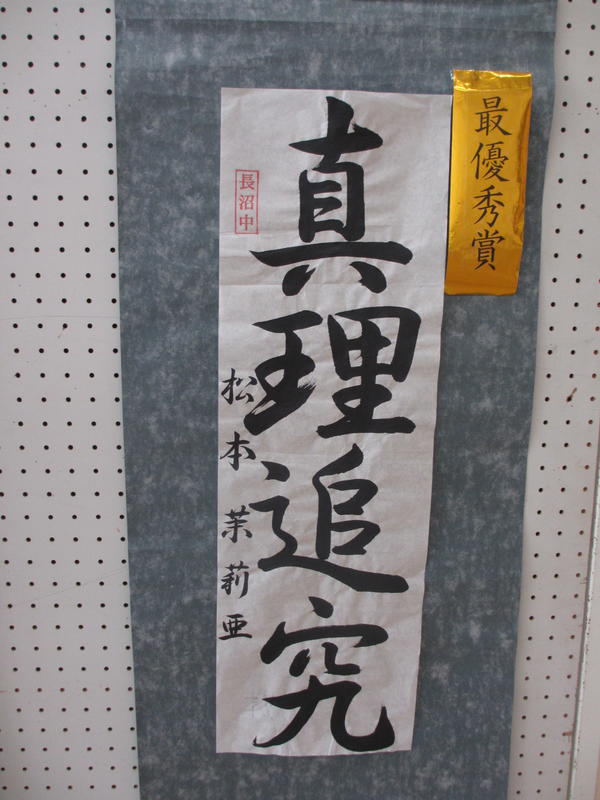 最優秀賞
真理追究
長沼中
松本茉莉亜